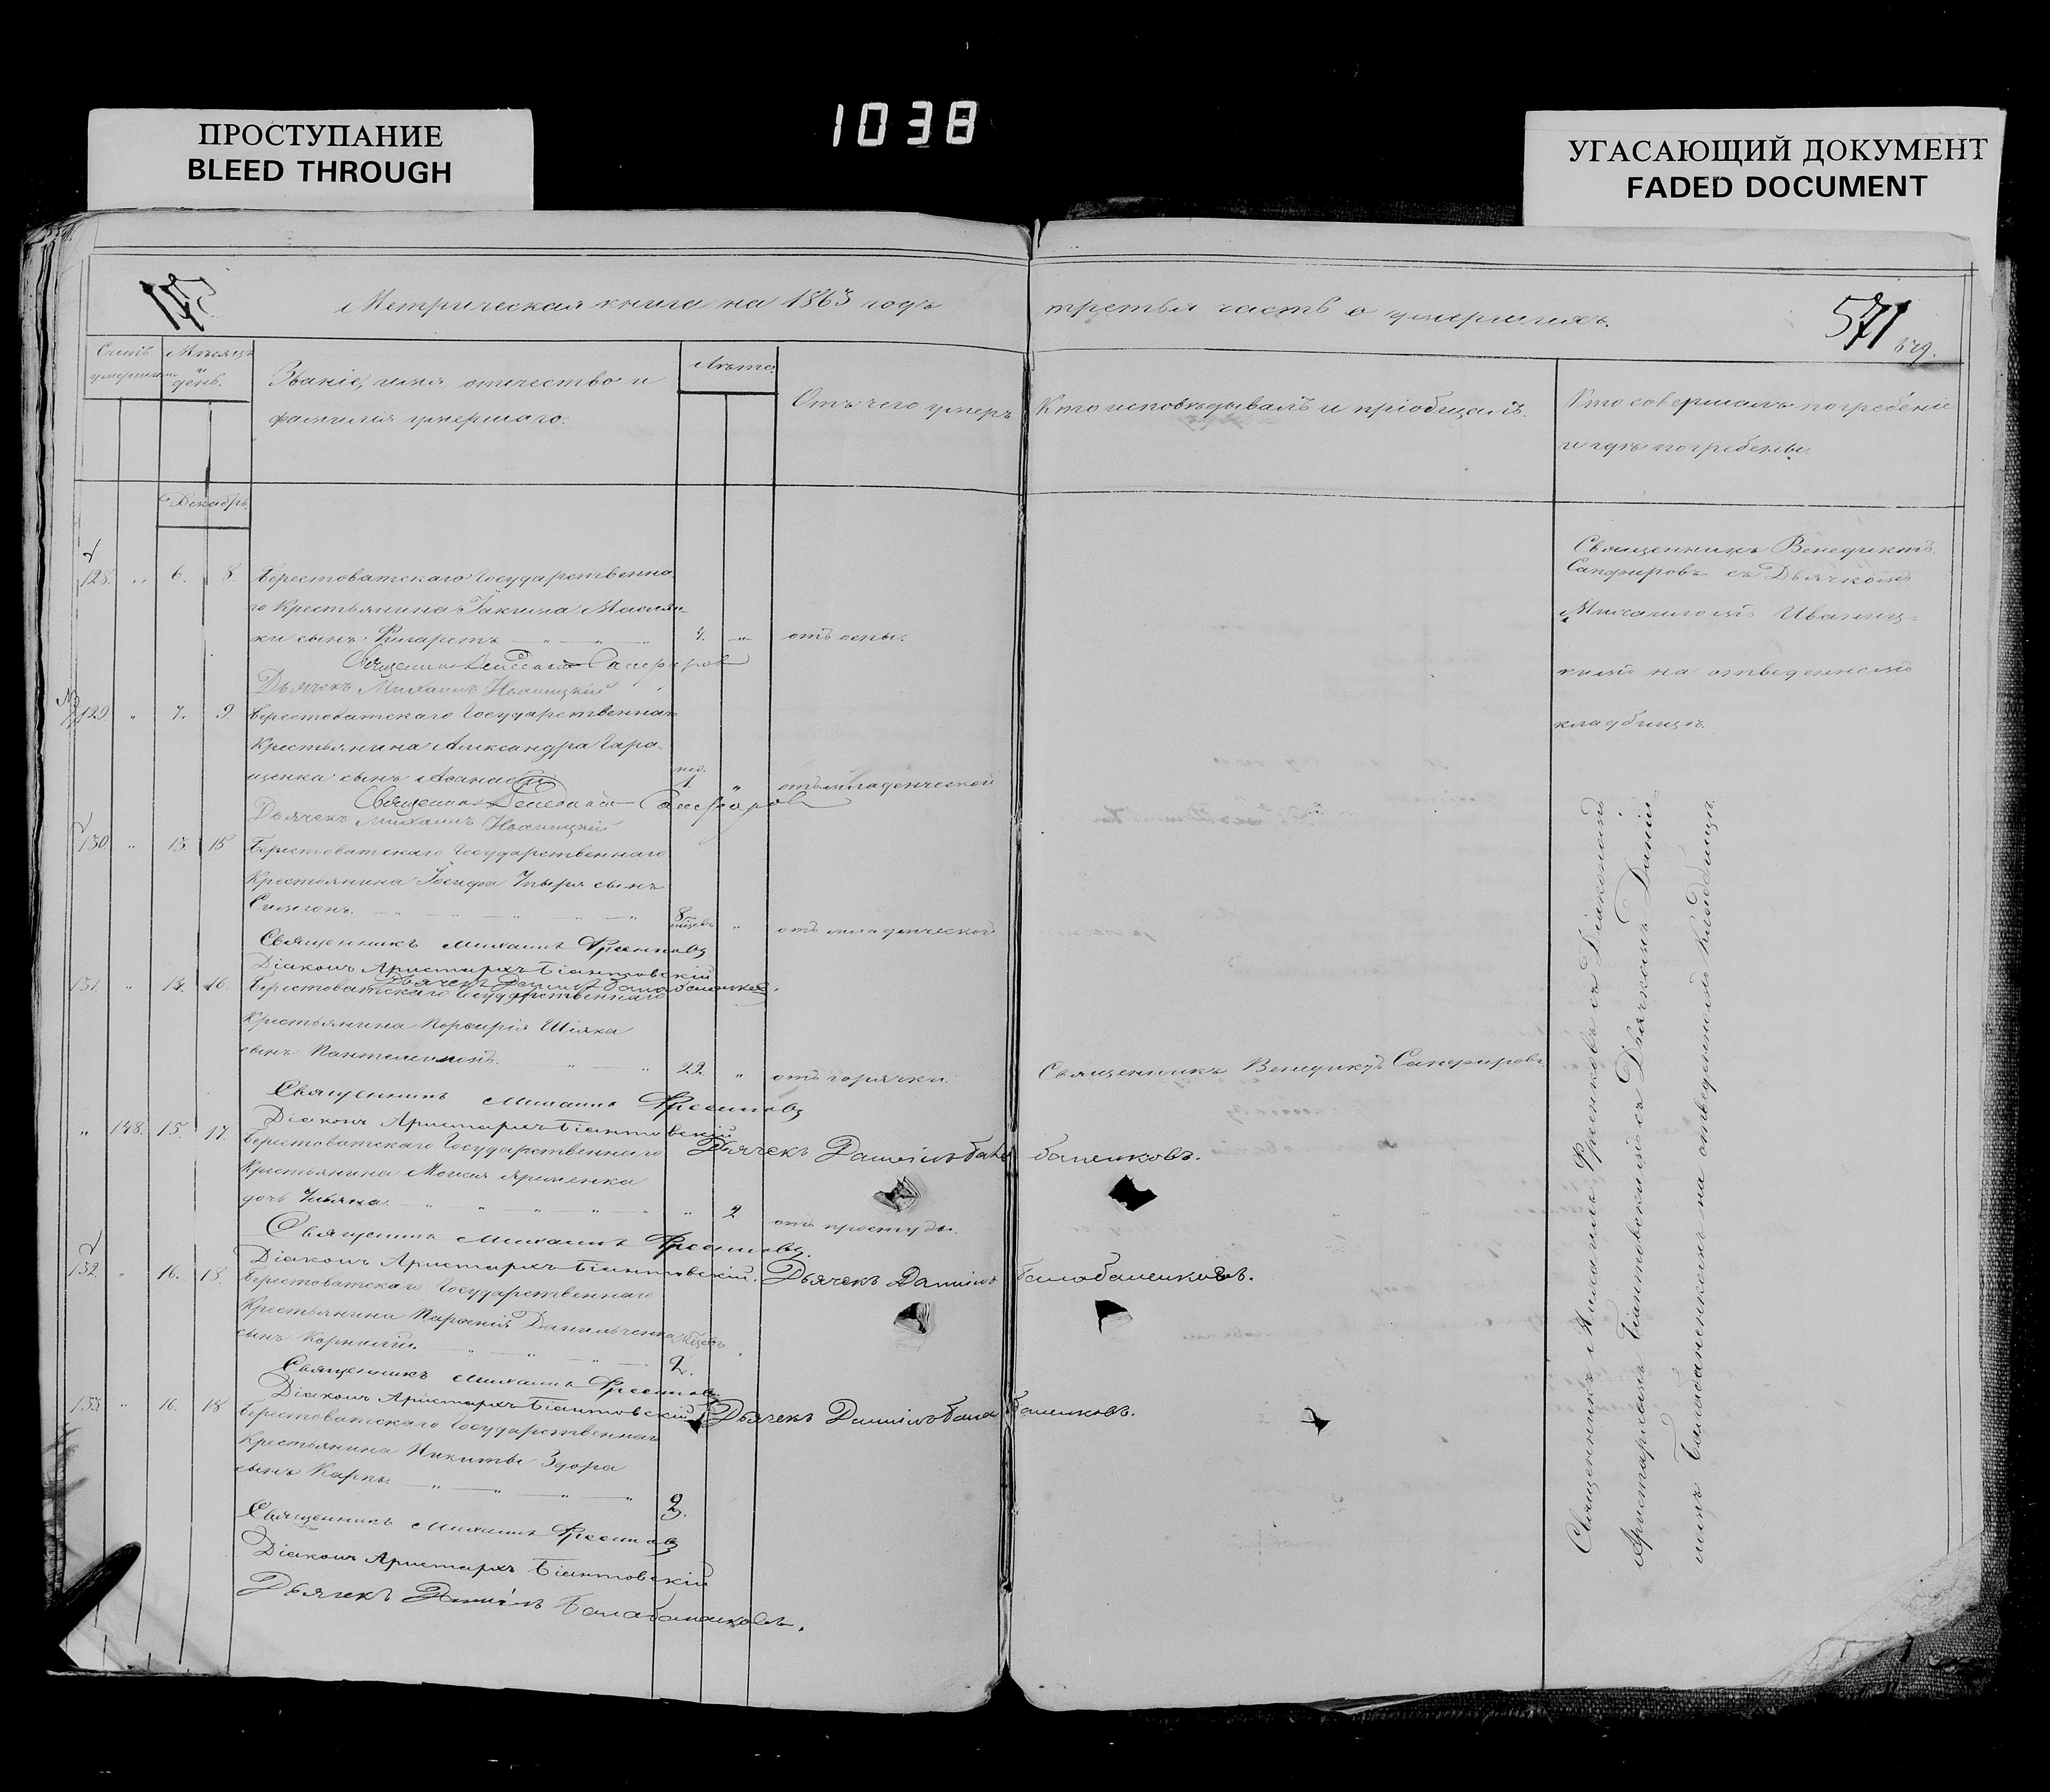 1038
ПРОСТУПАНИЕ
BLEED THROUGH
УГАСАЮЩИЙ ДОКУМЕНТ
FADED DOCUMENT
Метрическая книга на 1863 годъ
третья часть о умершихъ.
571
Счетъ умершихъ
Мѣсяцъ и день.
Званіе, имя, отчество и
фамилія умершаго.
Лѣта.
Отъ чего умеръ
Кто исповѣдывалъ и пріобщалъ.
Кто совершалъ погребеніе
и гдѣ погребены.
Декабрь
128. " 6. 8. Берестоватскаго Государственна
го Крестьянина Іакина Маслян-
ки сынъ Филаретъ 4. " отъ оспы.
Священникъ Венедиктъ Сапфировъ
Дьячекъ Михаилъ Иваницкій
Священникъ Венедиктъ
Сапфировъ съ Дьячкомъ
Михаиломъ Иваниц-
кимъ на отведенномъ
кладбищѣ.
129 " 7. 9. Берестоватскаго Государственнаго
Крестьянина Александра Гара-
щенка сынъ Аѳанасій нед. 1. " отъ младенческой
Священникъ Венедиктъ Сапфировъ
Дьячекъ Михаилъ Иваницкій
130. " 13. 15 Берестоватскаго Государственнаго
Крестьянина Іосифа сынъ
Симеонъ. 8 мцевъ " отъ младенческой
Священникъ Михаилъ
Діаконъ Аристархъ Біантовскій
Дьячекъ Даніилъ Балабаненковъ.
131. " 14. 16. Берестоватскаго Государственнаго
Крестьянина Порфирія Шіяка
сынъ Пантелеимонъ. 22 " отъ горячки. Священникъ Венедиктъ Сапфировъ
Священникъ Михаилъ
Діаконъ Аристархъ Біантовскій
Дьячекъ Даніилъ Балабаненковъ.
" 148. 15. 17. Берестоватскаго Государственнаго
Крестьянина Мокія Яременка
дочь Ульяна. " 2 отъ простуды.
Священникъ Михаилъ
Діаконъ Аристархъ Біантовскій. Дьячекъ Даніилъ Балабаненковъ.
132 " 16. 18. Берестоватскаго Государственнаго
Крестьянина Парфенія Данильченка
сынъ Корнилій. мцевъ 2.
Священникъ Михаилъ
Діаконъ Аристархъ Біантовскій Дьячекъ Даніилъ Балабаненковъ.
133 " 16. 18 Берестоватскаго Государственнаго
Крестьянина Никиты Здора
сынъ Карпъ
Священникъ Михаилъ
Діаконъ Аристархъ Біантовскій
Дьячекъ Даніилъ Балабаненковъ.
Священникъ Михаилъ съ Діакономъ
Аристархомъ Біантовскимъ съ Дьячкомъ Даніи-
ломъ Балабаненкомъ на отведенномъ Кладбищѣ.